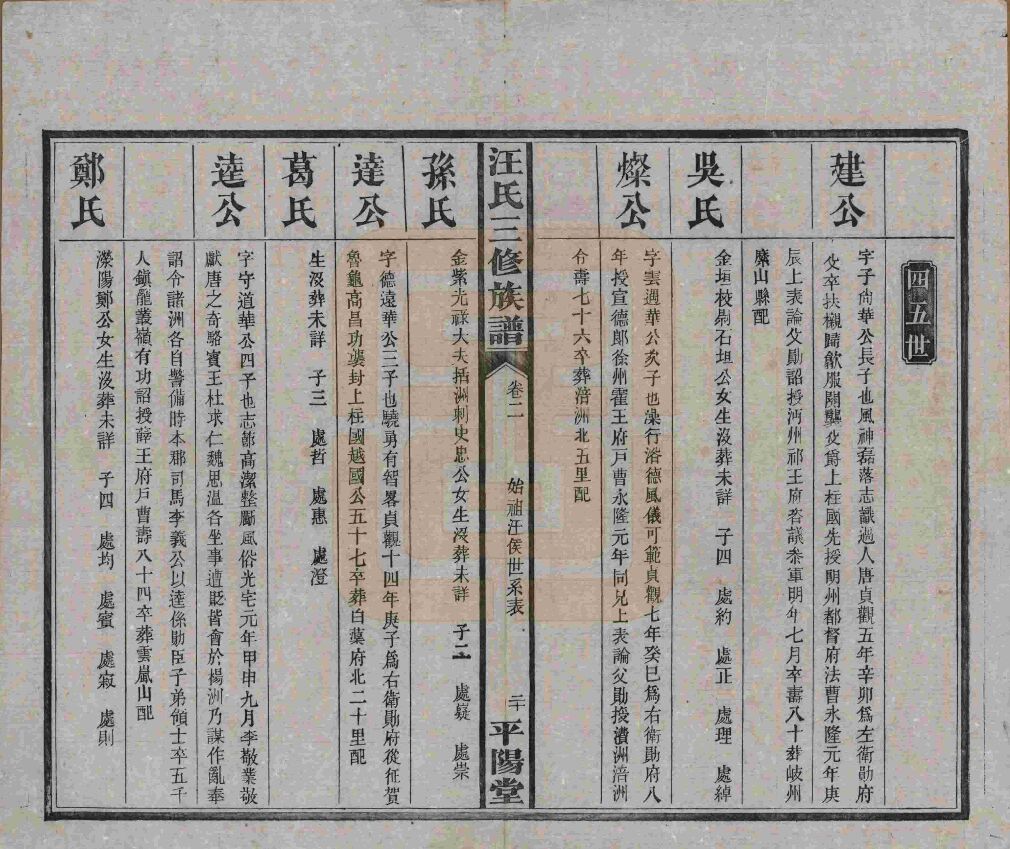 四五世
建公
字子尚華公長子也風神磊落志識過人唐貞觀五年辛卯爲左衛勛府
父卒扶櫬歸歙服闋襲父爵上柱國先授朔州都督府法曹永隆元年庚
辰上表論父勛詔授沔州祁王府咨議叅軍明年七月卒壽八十葬岐州
縻山縣配
吳氏
金垣校尉石垣公女生沒葬未詳 子四 處約 處正 處理 處綽
燦公
字雲遇華公次子也澡行浴德風儀可範貞觀七年癸巳爲右衛勛府八
年授宣德郎徐州霍王府戸曹永隆元年同兄上表論父勛授潰洲涪洲
令壽七十六卒葬涪洲北五里配
汪氏三修族譜
卷二
始祖汪侯世系表
二十
平陽堂
孫氏
金紫光祿大夫括洲刺史忠公女生沒葬未詳 子二 處嶷 處崇
達公
字德遠華公三子也驍勇有智畧貞觀十四年庚子爲右衛勛府從征賀
魯龜高昌功襲封上柱國越國公五十七卒葬白蕖府北二十里配
葛氏
生沒葬未詳 子三 處哲 處惠 處澄
逵公
字守道華公四子也志節高潔整勵風俗光宅元年甲申九月李敬業敬
猷唐之奇駱賓王杜求仁魏思溫各坐事遭貶皆會於楊洲乃謀作亂奉
詔令諸洲各自警備時本郡司馬李義公以逵係勛臣子弟領士卒五千
人鎭龍叢嶺有功詔授薛王府戸曹壽八十四卒葬雲嵐山配
鄭氏
濚陽鄭公女生沒葬未詳 子四 處均 處賓 處寂 處則